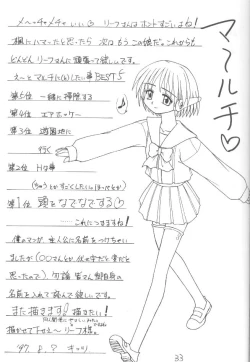 マ〜ルチ♡
メ〜ッチャメチャ いい♡ リーフさんは ホントすごいよね！
楓にハマったと思ったら 次は もう この娘だ。これからも
どんどん リーフさんに 頑張って欲しいです。
え〜と マルチに したい 事 BEST5
第5位 一緒に 掃除する
第4位 エアホッケー
第3位 遊園地に
行く
第2位 Hな事
第1位 頭を なでなでする♡
これに つきますね！
僕のマンガ 主人公に 名前を つけちゃい
ましたが
思ったので 勿論 皆さん 御自身の
名前を 入れて 読んで 欲しいです。
また 描きます！ 描きたい！
描かせて 下せえ〜 リーフ様。
'97. 8. ?
33